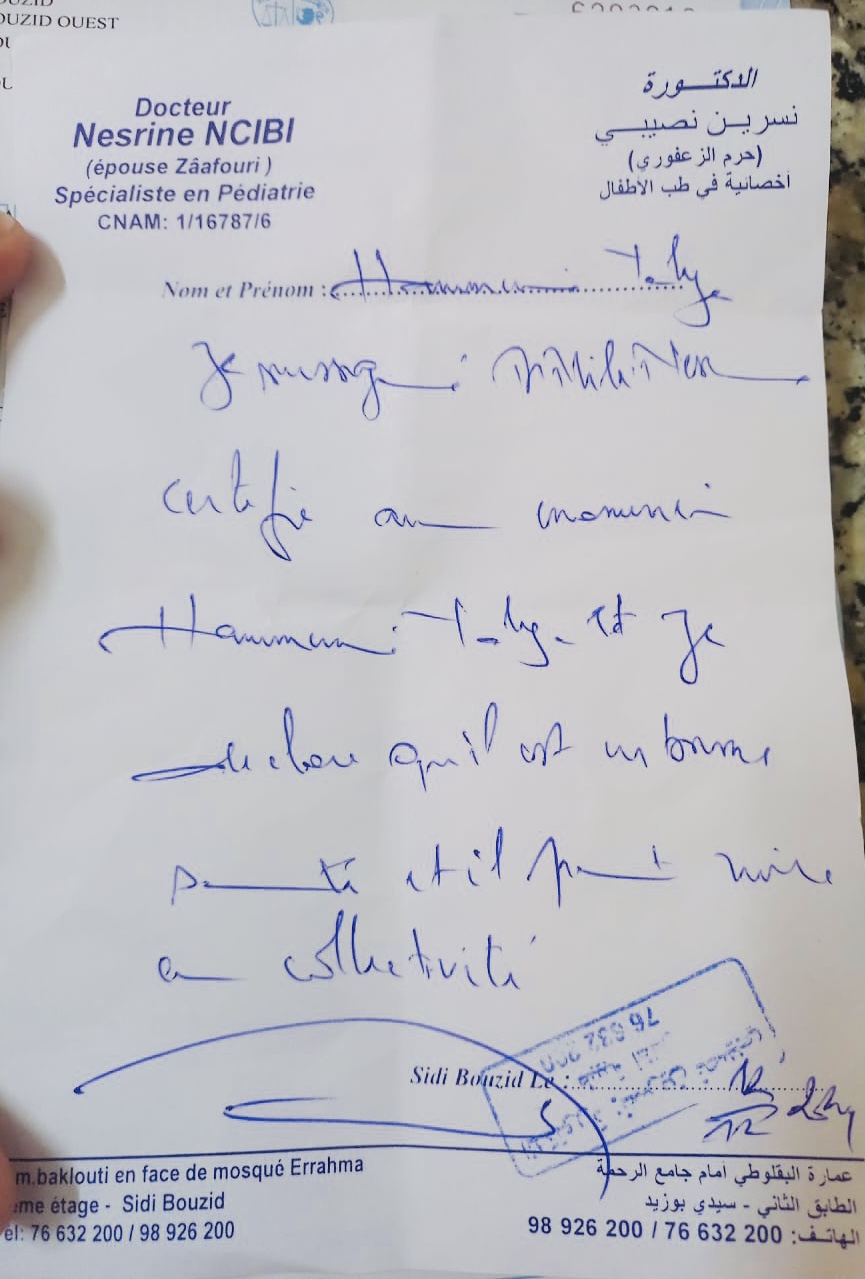 UZID
OUZID OUEST
Docteur
Nesrine NCIBI
(épouse Zâafouri )
Spécialiste en Pédiatrie
CNAM: 1/16787/6
الدكتـــورة
نسريـن نصيبـــي
(حرم الزعفوري)
أخصائية في طب الأطفال
Nom et Prénom : Hammami
Je soussigné
certifie avoir examiné
Hammami et Je
déclare qu'il est en bonne
santé et il peut vivre
en collectivité
76 632 200
Sidi Bouzid Le :
m.baklouti en face de mosqué Errahma
ème étage - Sidi Bouzid
él: 76 632 200 / 98 926 200
عمارة البقلوطي أمام جامع الرحمة
الطابق الثاني - سيدي بوزيد
الهاتــف: 76 632 200 / 98 926 200